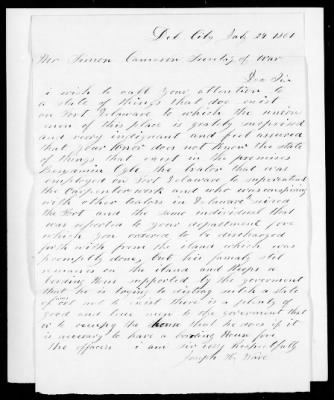 Del City July 24 1861
Mr Simon Cameron Secretary of War
Dear Sir
i wish to call your attention to
a state of things that doe exist
on Fort Delaware to which the union
men of this place is grately surprised
and very indignant and feel assured
that your honor does not know the state
of things that exist in the premises
Benjamin Ogle the traitor that was
employed on Fort Delaware to superintend
the Carpenter work and who was conspiring
with other traitors in Delaware
the Fort and the same individual that
was reported to your department for
which you ordered to be discharged
forth with from the island which was
promptly done, but his famaly stil
remains on the island and keeps a
boarding House supported by the government
that he is trying to distroy such a state
of things ort not to exist there is a plenty of
good and true men to the government that
to occupy the house that he does if it
is necesary to have a boarding House for
the officers i am Sir very Respectfully
Joseph H,